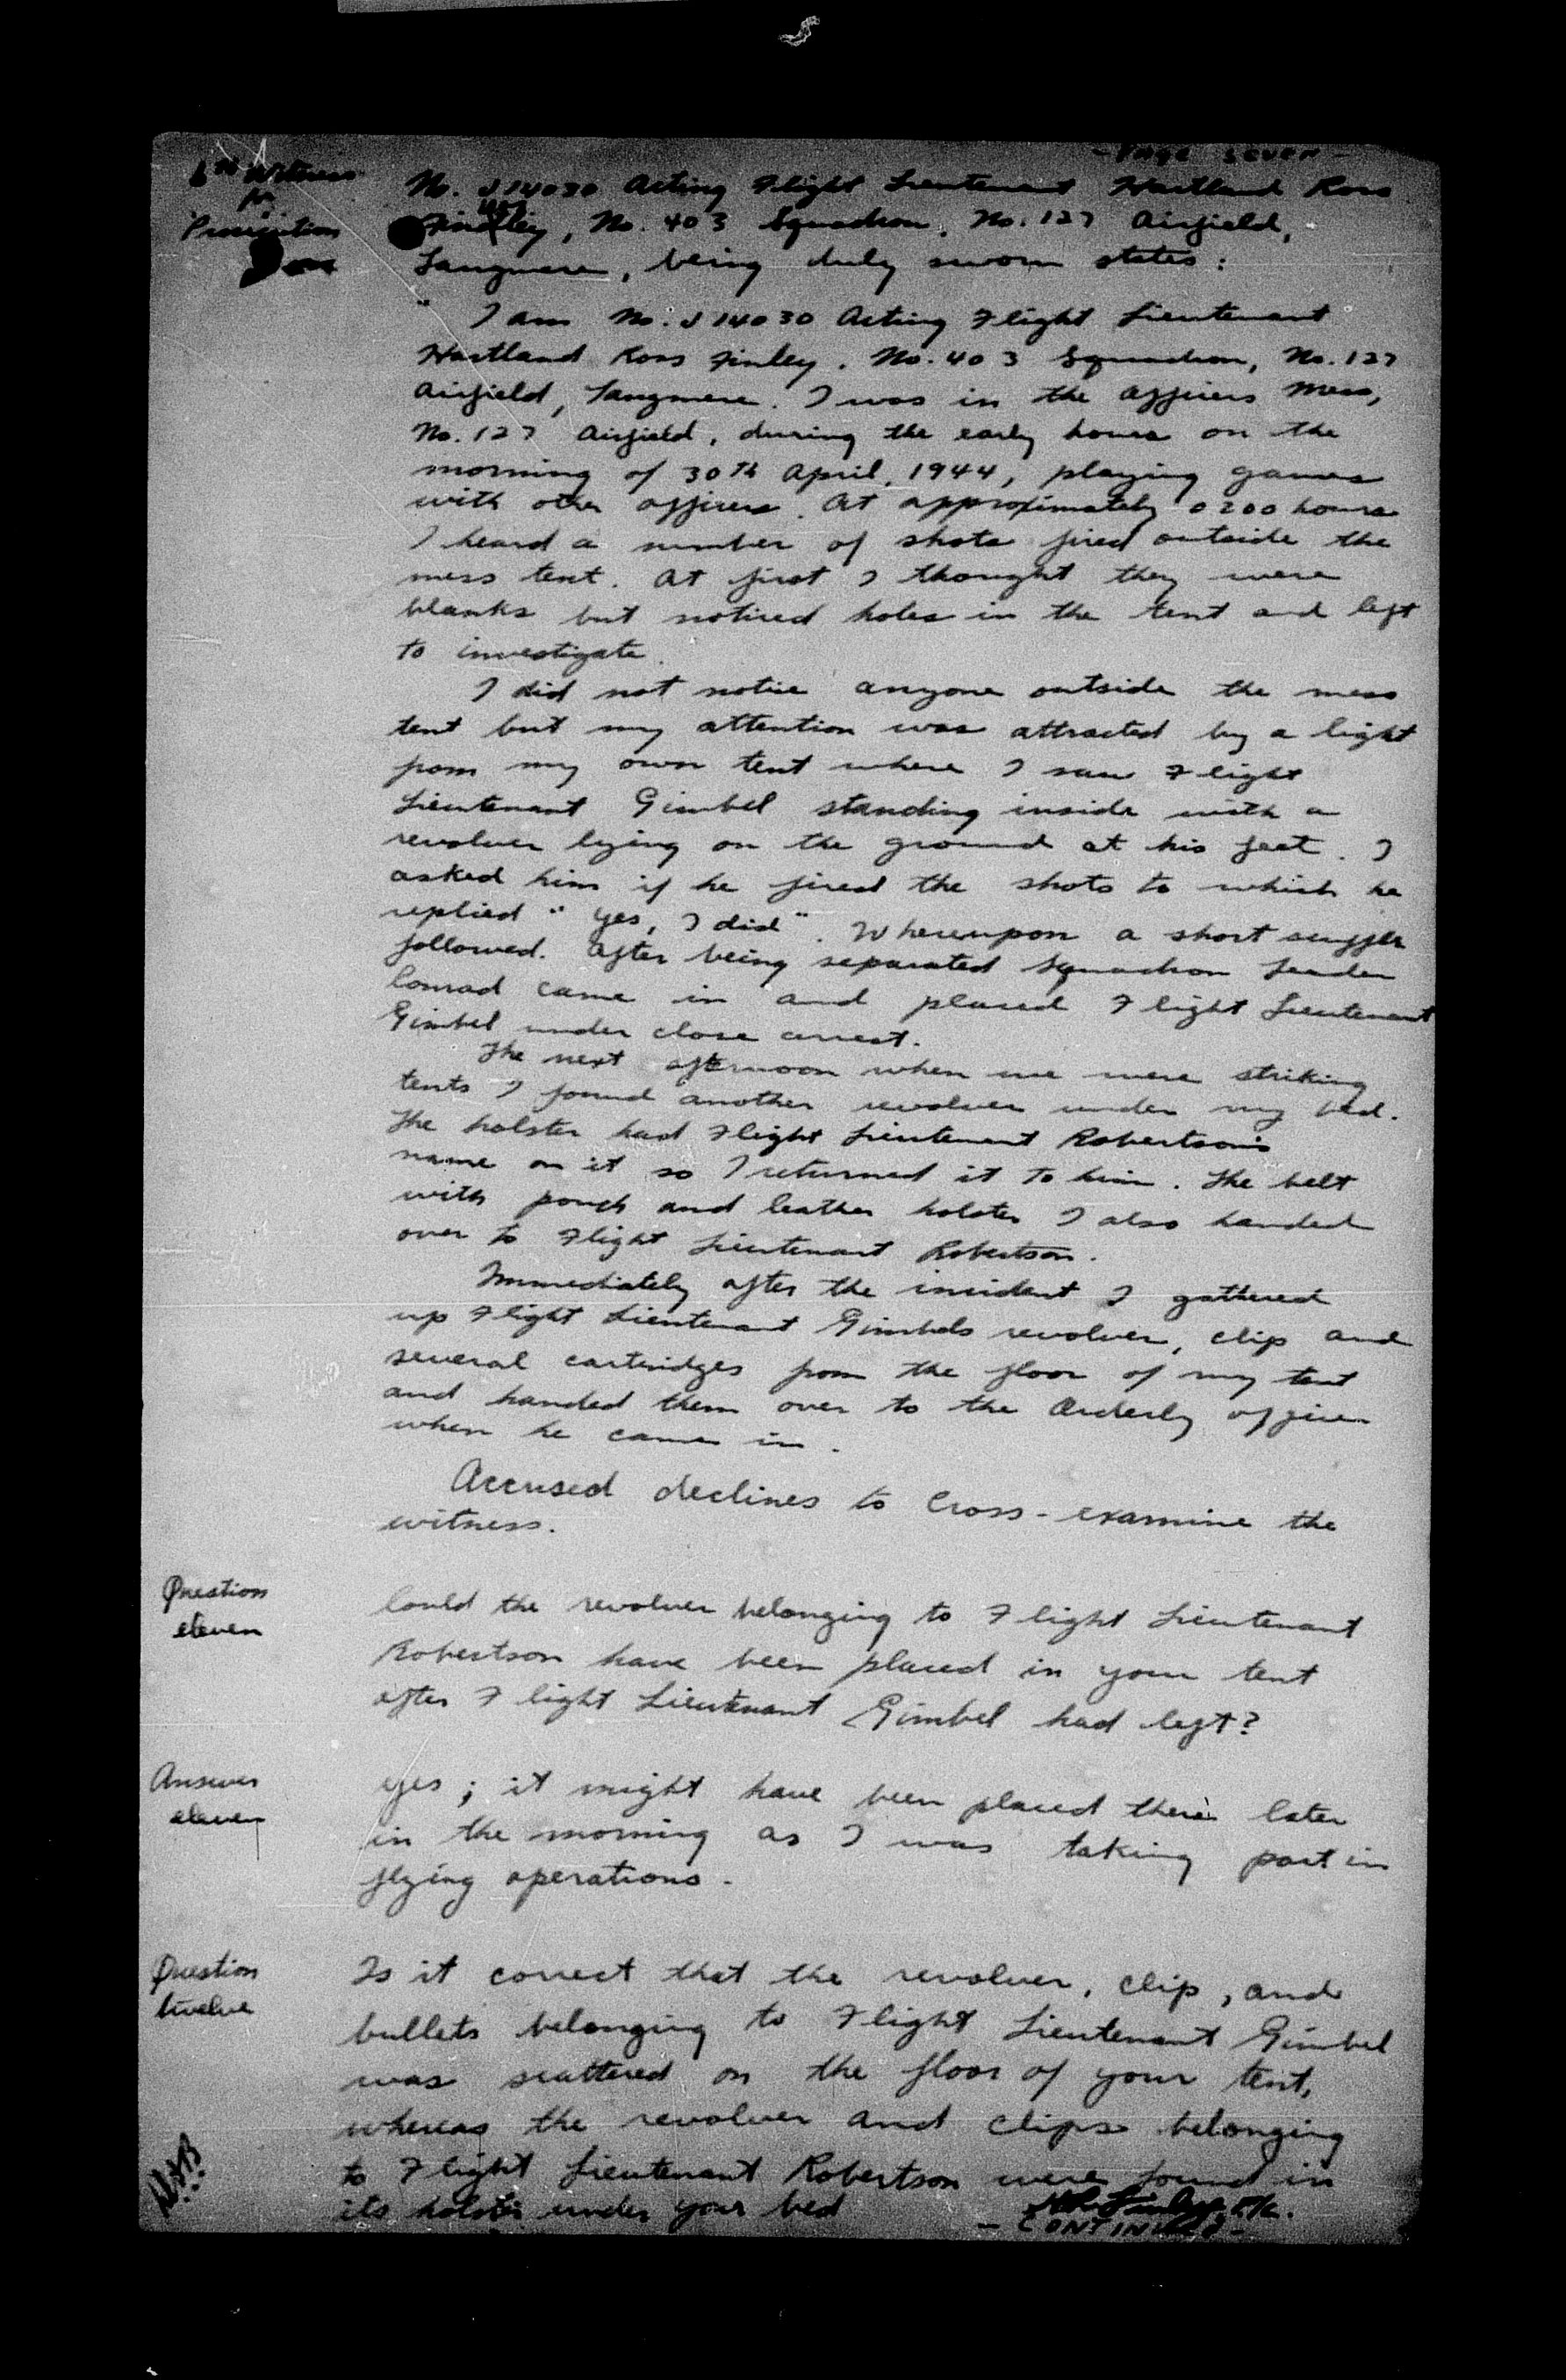 - Page Seven -
6th Witness
for
Prosecution
No. J14030 Acting Flight Lieutenant Hartland Ross
Findley, No. 403 Squadron, No. 127 Airfield,
Tangmere, being duly sworn states:
" I am No. J14030 Acting Flight Lieutenant
Hartland Ross Finley, No. 403 Squadron, No. 127
Airfield, Tangmere. I was in the Officers Mess,
No. 127 Airfield, during the early hours on the
morning of 30th April, 1944, playing games
with other officers. At approximately 0200 hours
I heard a number of shots fired outside the
mess tent. At first I thought they were
blanks but noticed holes in the tent and left
to investigate.
I did not notice anyone outside the mess
tent but my attention was attracted by a light
from my own tent where I saw Flight
Lieutenant Gimbel standing inside with a
revolver lying on the ground at his feet. I
asked him if he fired the shots to which he
replied "Yes, I did". Whereupon a short scuffle
followed. After being separated Squadron Leader
Conrad came in and placed Flight Lieutenant
Gimbel under close arrest.
The next afternoon when we were striking
tents I found another revolver under my bed.
The holster had Flight Lieutenant Robertson's
name on it so I returned it to him. The belt
with pouch and leather holster I also handed
over to Flight Lieutenant Robertson.
Immediately after the incident I gathered
up Flight Lieutenant Gimbels revolver, clip and
several cartridges from the floor of my tent
and handed them over to the Orderly officer
when he came in.
Accused declines to Cross-examine the
witness.
Question
eleven
Could the revolver belonging to Flight Lieutenant
Robertson have been placed in your tent
after Flight Lieutenant Gimbel had left?
Answer
eleven
yes; it might have been placed there later
in the morning as I was taking part in
flying operations.
Question
twelve
Is it correct that the revolver, clip, and
bullets belonging to Flight Lieutenant Gimbel
was scattered on the floor of your tent,
whereas the revolver and clips belonging
to Flight Lieutenant Robertson were found in
its holster under your bed
H R Finley F/L.
- CONTINUED -